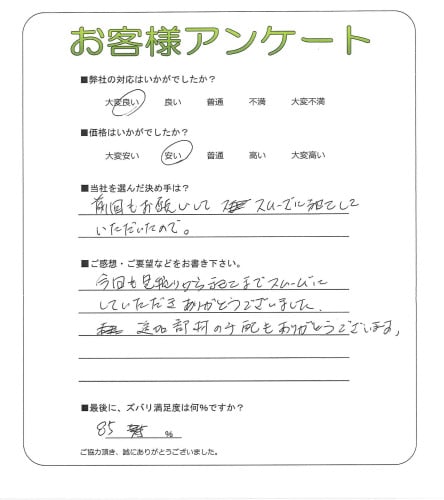 お客様アンケート
■弊社の対応はいかがでしたか?
大変良い 良い 普通 不満 大変不満
■価格はいかがでしたか?
大変安い 安い 普通 高い 大変高い
■当社を選んだ決め手は?
前回もお願いして スムーズに
いただいたので。
■ご感想・ご要望などをお書き下さい。
今回も見積りから までスムーズに
していただきありがとうございました.
追加部材の手配もありがとうございます,
■最後に、ズバリ満足度は何%ですか?
85 %
ご協力頂き、誠にありがとうございました。